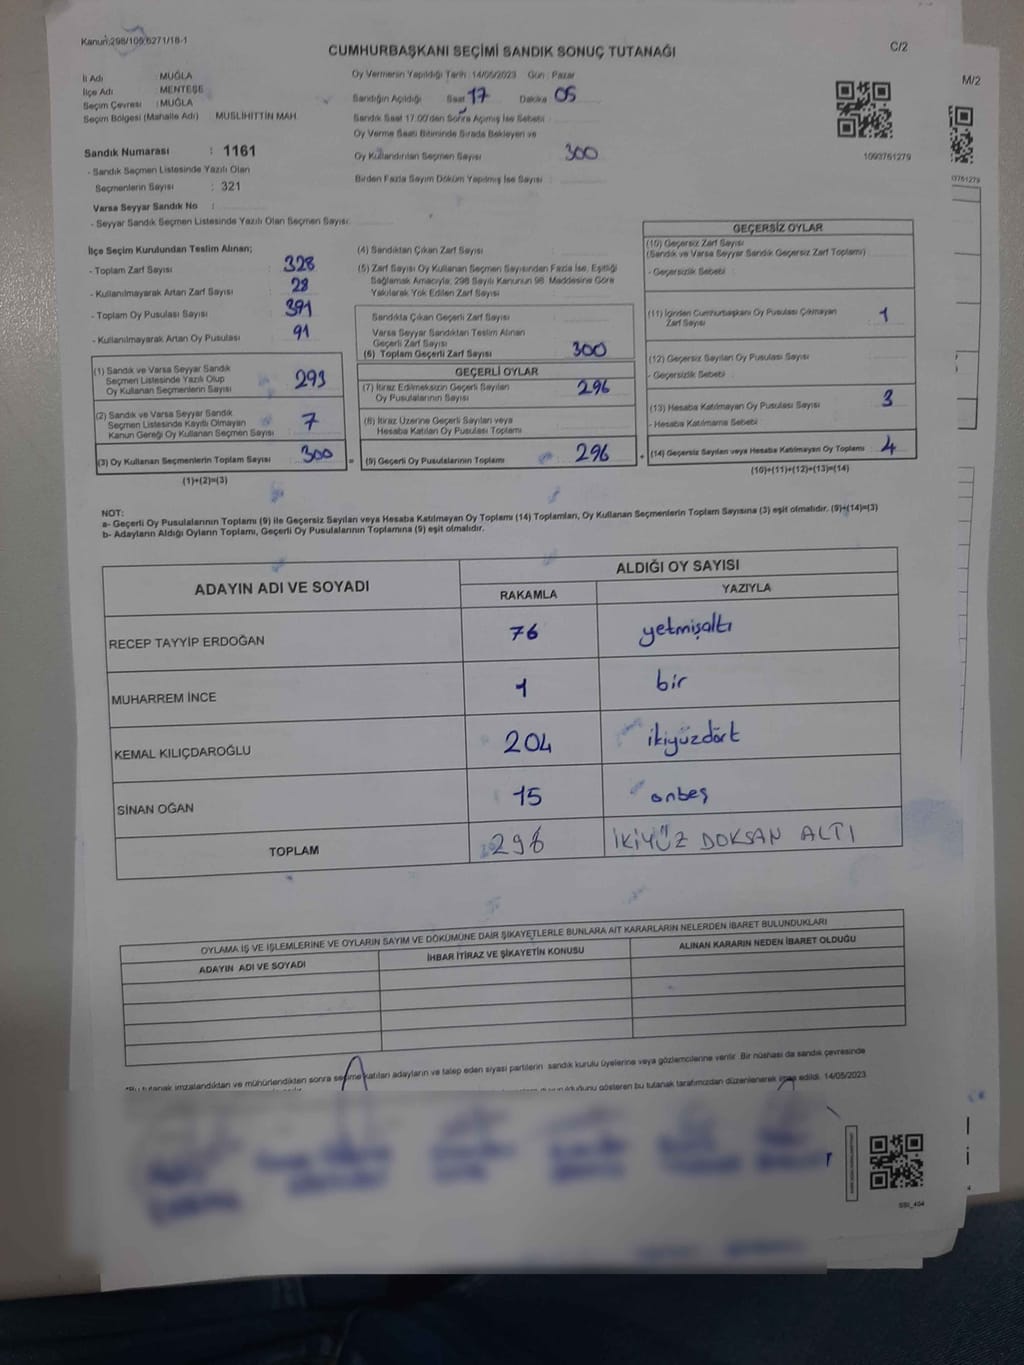 Kanun:298/105;6271/18-1
CUMHURBAŞKANI SEÇİMİ SANDIK SONUÇ TUTANAĞI
C/2
M/2
İl Adı : MUĞLA
İlçe Adı : MENTEŞE
Seçim Çevresi : MUĞLA
Seçim Bölgesi (Mahalle Adı) MUSLİHİTTİN MAH
Oy Vermenin Yapıldığı Tarih : 14/05/2023 Gün : Pazar
Sandığın Açıldığı Saat 17 Dakika 05
Sandık Saat 17:00'den Sonra Açımış İse Sebebi
Oy Verme Saati Bitiminde Sırada Bekleyen ve
Oy Kullandırılan Seçmen Sayısı 300
Birden Fazla Sayım Döküm Yapılmış İse Sayısı
1093761279
Sandık Numarası : 1161
- Sandık Seçmen Listesinde Yazılı Olan
Seçmenlerin Sayısı : 321
Varsa Seyyar Sandık No :
- Seyyar Sandık Seçmen Listesinde Yazılı Olan Seçmen Sayısı:
İlçe Seçim Kurulundan Teslim Alınan;
- Toplam Zarf Sayısı : 328
- Kullanılmayarak Artan Zarf Sayısı : 28
- Toplam Oy Pusulası Sayısı : 391
- Kullanılmayarak Artan Oy Pusulası : 91
(1) Sandık ve Varsa Seyyar Sandık
Seçmen Listesinde Yazılı Olup
Oy Kullanan Seçmenlerin Sayısı : 293
(2) Sandık ve Varsa Seyyar Sandık
Seçmen Listesinde Kayıtlı Olmayan
Kanun Gereği Oy Kullanan Seçmen Sayısı 7
(3) Oy Kullanan Seçmenlerin Toplam Sayısı : 300 =
(1)+(2)=(3)
(4) Sandıktan Çıkan Zarf Sayısı
(5) Zarf Sayısı Oy Kullanan Seçmen Sayısından Fazla İse, Eşitliği
Sağlamak Amacıyla; 298 Sayılı Kanunun 98. Maddesine Göre
Yakılarak Yok Edilen Zarf Sayısı
Sandıkta Çıkan Geçerli Zarf Sayısı
Varsa Seyyar Sandıktan Teslim Alınan
Geçerli Zarf Sayısı
(6) Toplam Geçerli Zarf Sayısı 300
GEÇERLİ OYLAR
(7) İtiraz Edilmeksizin Geçerli Sayılan
Oy Pusulalarının Sayısı 296
(8) İtiraz Üzerine Geçerli Sayılan veya
Hesaba Katılan Oy Pusulası Toplamı
(9) Geçerli Oy Pusulalarının Toplamı 296 +
GEÇERSİZ OYLAR
(10) Geçersiz Zarf Sayısı
(Sandık ve Varsa Seyyar Sandık Geçersiz Zarf Toplamı)
- Geçersizlik Sebebi
(11) İçinden Cumhurbaşkanı Oy Pusulası Çıkmayan
Zarf Sayısı 1
(12) Geçersiz Sayılan Oy Pusulası Sayısı
- Geçersizlik Sebebi
(13) Hesaba Katılmayan Oy Pusulası Sayısı 3
- Hesaba Katılmama Sebebi
(14) Geçersiz Sayılan veya Hesaba Katılmayan Oy Toplamı : 4
(10)+(11)+(12)+(13)=(14)
NOT:
a- Geçerli Oy Pusulalarının Toplamı (9) ile Geçersiz Sayılan veya Hesaba Katılmayan Oy Toplamı (14) Toplamları, Oy Kullanan Seçmenlerin Toplam Sayısına (3) eşit olmalıdır. (9)+(14)=(3)
b- Adayların Aldığı Oyların Toplamı, Geçerli Oy Pusulalarının Toplamına (9) eşit olmalıdır.
ADAYIN ADI VE SOYADI
ALDIĞI OY SAYISI
RAKAMLA YAZIYLA
RECEP TAYYİP ERDOĞAN 76 yetmişaltı
MUHARREM İNCE 1 bir
KEMAL KILIÇDAROĞLU 204 ikiyüzdört
SİNAN OĞAN 15 onbeş
TOPLAM 296 İKİYÜZ DOKSAN ALTI
OYLAMA İŞ VE İŞLEMLERİNE VE OYLARIN SAYIM VE DÖKÜMÜNE DAİR ŞİKAYETLERLE BUNLARA AİT KARARLARIN NELERDEN İBARET BULUNDUKLARI
ADAYIN ADI VE SOYADI İHBAR İTİRAZ VE ŞİKAYETİN KONUSU ALINAN KARARIN NEDEN İBARET OLDUĞU
*Bu tutanak imzalandıktan ve mühürlendikten sonra seçime katılan adayların ve talep eden siyasi partilerin sandık kurulu üyelerine veya gözlemcilerine verilir. Bir nüshası da sandık çevresinde
olduğunu gösteren bu tutanak tarafımızdan düzenlenerek imza edildi. 14/05/2023
SSI_404